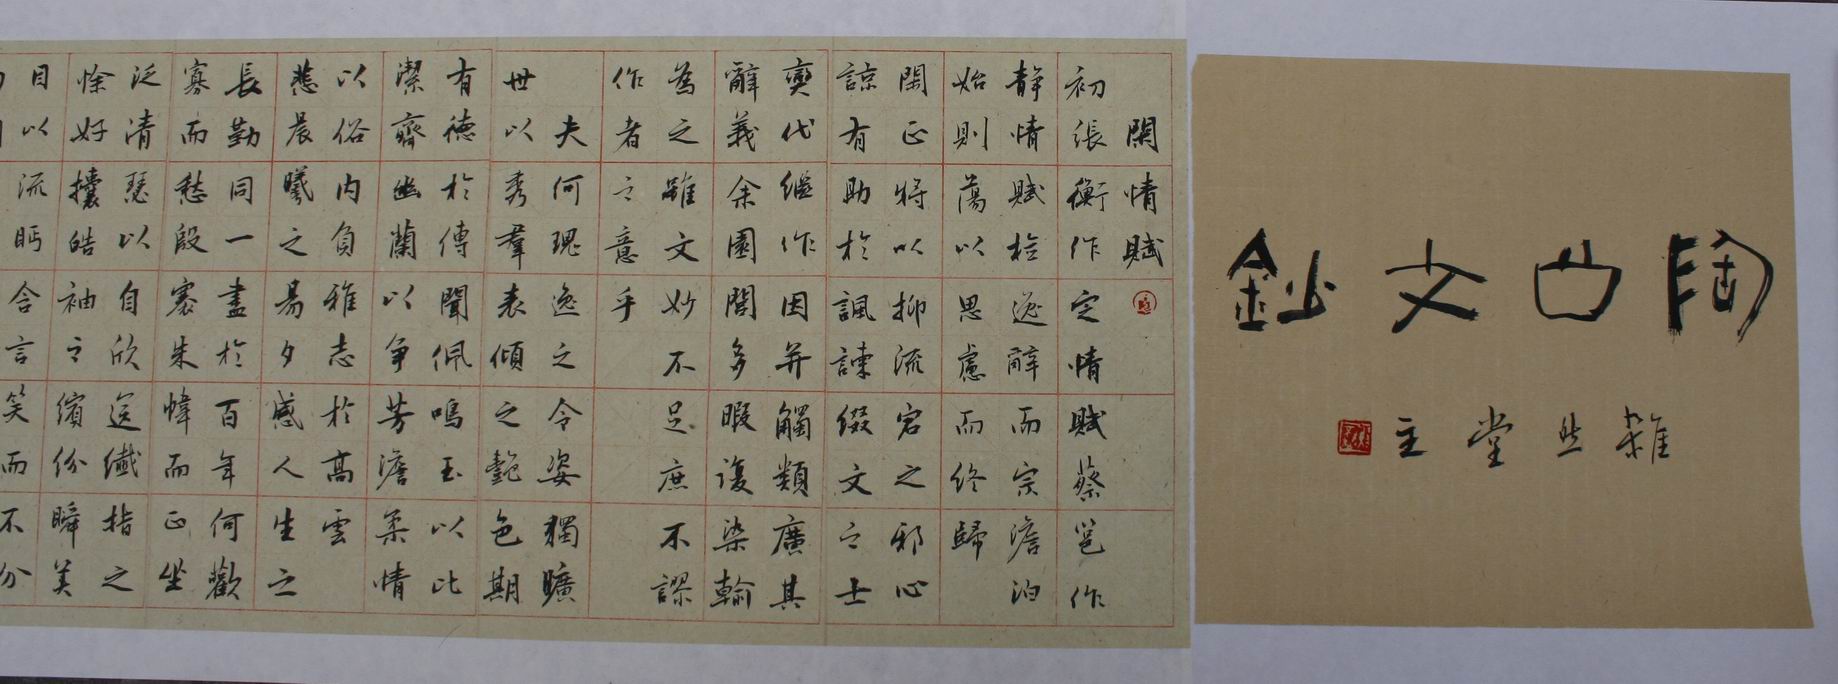 陶文鈔
雜堂主
閑情賦
初張衡作定情賦蔡邕作
静情賦檢逸辭而宗澹泊
始則蕩以思慮而終歸
閑正將以抑流宕之邪心
諒有助於諷諫綴文之士
奕代繼作因并觸類廣其
辭義余園閭多暇復染翰
為之雖文妙不足庶不謬
作者之意乎
夫何瑰逸之令姿獨曠
世以秀羣表傾之艷色期
有德於傳聞佩鳴玉以比
潔齊幽蘭以争芳澹柔情
以俗內負雅志於高雲
悲晨曦之易夕感人生之
長勤同一盡於百年何歡
寡而愁殷褰朱幃而正坐
泛清瑟以自欣送纖指之
好攘皓袖之繽份瞬美
目以流眄含言笑而不分